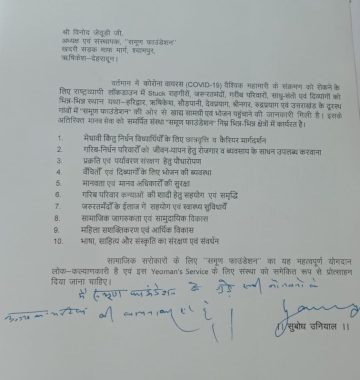 श्री विनोद जेठुडी जी,
अध्यक्ष एवं संस्थापक, "समूण फाउंडेशन"
खदरी सड़क माफ मार्ग, श्यामपुर,
ऋषिकेश-देहरादून।
वर्तमान में कोरोना वायरस (COVID-19) वैश्विक महामारी के संक्रमण को रोकने के
लिए राष्ट्रव्यापी लॉकडाउन में Stuck राहगीरों, जरूरतमंदों, गरीब परिवारों, साधु-संतो एवं दिव्यांगों को
भिन्न-भिन्न स्थान यथा-हरिद्वार, ऋषिकेश, सौड़पानी, देवप्रयाग, श्रीनगर, रुद्रप्रयाग एवं उत्तराखण्ड के दूरस्थ
गावों में "समूण फाउंडेशन" की ओर से खाद्य सामग्री एवं भोजन पहुंचाने की जानकारी मिली है। इसके
अतिरिक्त मानव सेवा को समर्पित संस्था "समूण फाउंडेशन" निम्न भिन्न-भिन्न क्षेत्रों में कार्यरत है।
1. मेधावी किंतु निर्धन विद्यार्थियों के लिए छात्रवृत्ति व कैरियर मार्गदर्शन
2. गरीब-निर्धन परिवारों को जीवन-यापन हेतु रोजगार व व्यवसाय के साधन उपलब्ध करवाना
3. प्रकृति एवं पर्यावरण संरक्षण हेतु पौधारोपण
4. वंचितों एवं दिव्यांगों के लिए भोजन की व्यवस्था
5. मानवता एवं मानव अधिकारों की सुरक्षा
6. गरीब परिवार कन्याओं की शादी हेतु सहयोग एवं समृद्धि
7. जरूरतमंदों के ईलाज में सहयोग एवं स्वास्थ्य सुविधायें
8. सामाजिक जागरुकता एवं सामुदायिक विकास
9. महिला सशक्तिकरण एवं आर्थिक विकास
10. भाषा, साहित्य और संस्कृति का संरक्षण एवं संवर्धन
सामाजिक सरोकारों के लिए "समूण फाउंडेशन" का यह महत्वपूर्ण योगदान
लोक-कल्याणकारी है एवं इस Yeoman's Service के लिए संस्था को समेकित रूप से प्रोत्साहन
दिया जाना चाहिए।
मैं समूण फाउंडेशन के
।। सुबोध उनियाल ।।